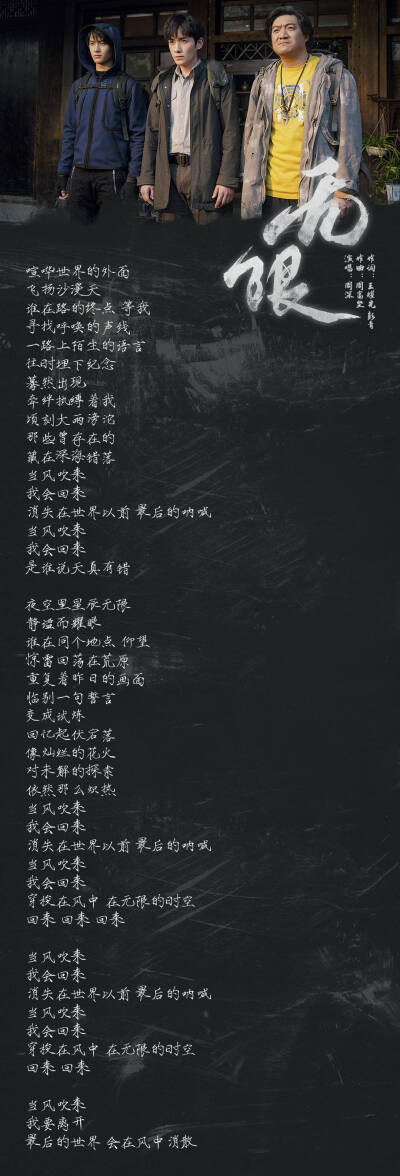 无限
作词：王耀光 彭青
作曲：周富楚
演唱：周深
喧哗世界的外面
飞扬沙漫天
谁在路的终点 等我
寻找呼唤的声线
一路上陌生的语言
往时埋下纪念
蓦然出现
牵绊执缚着我
顷刻大雨滂沱
那些曾存在的
藏在深海错落
当风吹来
我会回来
消失在世界以前 最后的呐喊
当风吹来
我会回来
是谁说天真有错
夜空里星辰无限
静谧而耀眼
谁在同个地点 仰望
惊雷回荡在荒原
重复着昨日的画面
临别一句誓言
变成试炼
回忆起伏宕落
像灿烂的花火
对未解的探索
依然那么炽热
当风吹来
我会回来
消失在世界以前 最后的呐喊
当风吹来
我会回来
穿梭在风中 在无限的时空
回来 回来 回来
当风吹来
我会回来
消失在世界以前 最后的呐喊
当风吹来
我会回来
穿梭在风中 在无限的时空
回来 回来
当风吹来
我要离开
最后的世界 会在风中 消散